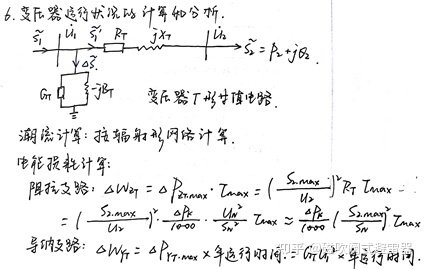 6.变压器运行状况的计算和分析.
S̃₁ U̇₁ S̃₁' R_T jX_T U̇₂ S̃₂ = P₂+jQ₂
ΔS̃
G_T -jB_T 变压器T形等值电路.
潮流计算:按辐射形网络计算.
电能损耗计算:
阻抗支路: ΔW_ZT = ΔP_ZT.max · τmax = (S₂.max/U₂)² R_T τmax
= (S₂.max/U₂)² · ΔPk/1000 · U_N²/S_N² τmax ≈ ΔPk/1000 (S₂.max/S_N)² τmax
导纳支路: ΔW_YT = ΔP_YT.max × 年运行时间. = G_T U₁² × 年运行时间.